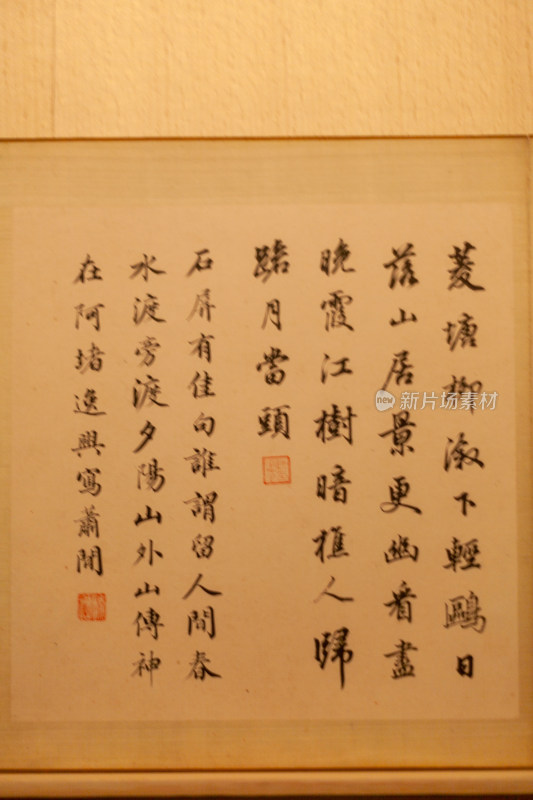 菱塘柳漵下輕鷗日
落山居景更幽看盡
晚霞江樹暗樵人歸
踏月當頭
石屏有佳句誰謂留人間春
水渡旁渡夕陽山外山傳神
在阿堵逸興寫蕭閒
new 新片场素材